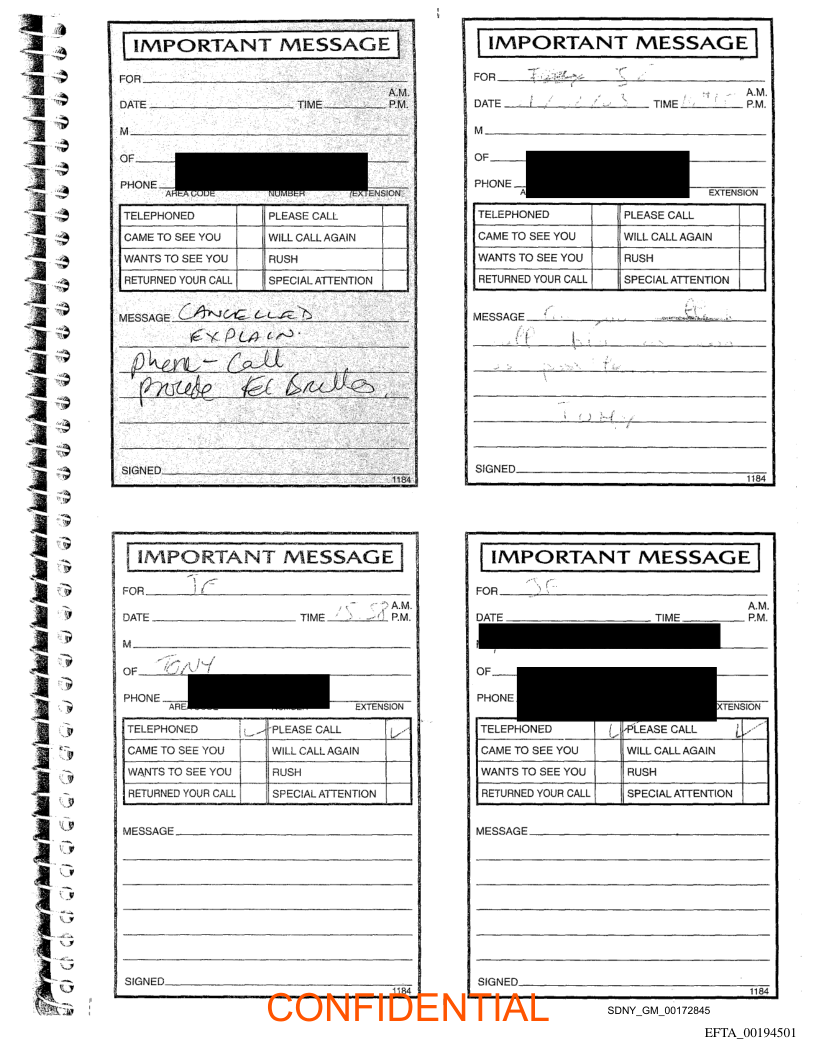 IMPORTANT MESSAGE
FOR
A.M.
DATE TIME P.M.
M
OF
PHONE
AREA CODE NUMBER EXTENSION
TELEPHONED PLEASE CALL
CAME TO SEE YOU WILL CALL AGAIN
WANTS TO SEE YOU RUSH
RETURNED YOUR CALL SPECIAL ATTENTION
MESSAGE CANCELLED
EXPLAIN.
Phone - Call
SIGNED
1184
IMPORTANT MESSAGE
FOR
A.M.
DATE TIME P.M.
M
OF
PHONE
EXTENSION
TELEPHONED PLEASE CALL
CAME TO SEE YOU WILL CALL AGAIN
WANTS TO SEE YOU RUSH
RETURNED YOUR CALL SPECIAL ATTENTION
MESSAGE
TONY
SIGNED
1184
IMPORTANT MESSAGE
FOR JE
A.M.
DATE TIME 15 58 P.M.
M
OF TONY
PHONE
EXTENSION
TELEPHONED PLEASE CALL
CAME TO SEE YOU WILL CALL AGAIN
WANTS TO SEE YOU RUSH
RETURNED YOUR CALL SPECIAL ATTENTION
MESSAGE
SIGNED
1184
IMPORTANT MESSAGE
FOR JE
A.M.
DATE TIME P.M.
OF
PHONE
TELEPHONED PLEASE CALL
CAME TO SEE YOU WILL CALL AGAIN
WANTS TO SEE YOU RUSH
RETURNED YOUR CALL SPECIAL ATTENTION
MESSAGE
SIGNED
1184
CONFIDENTIAL
SDNY_GM_00172845
EFTA_00194501